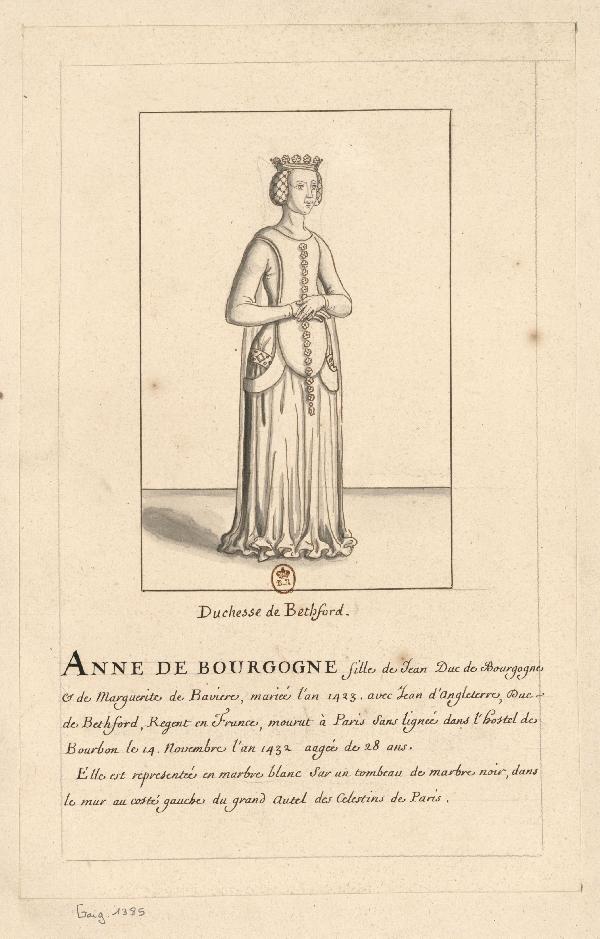 B.R
Duchesse de Bethford.
ANNE DE BOURGOGNE fille de Jean Duc de Bourgogne
& de Marguerite de Baviere, mariée l'an 1423. avec Jean d'Angleterre, Duc
de Bethford, Regent en France, mourut à Paris sans lignée dans l'hostel de
Bourbon le 14. Novembre l'an 1432 aagée de 28 ans.
Elle est representée en marbre blanc sur un tombeau de marbre noir, dans
le mur au costé gauche du grand Autel des Celestins de Paris.
Gaig. 1395